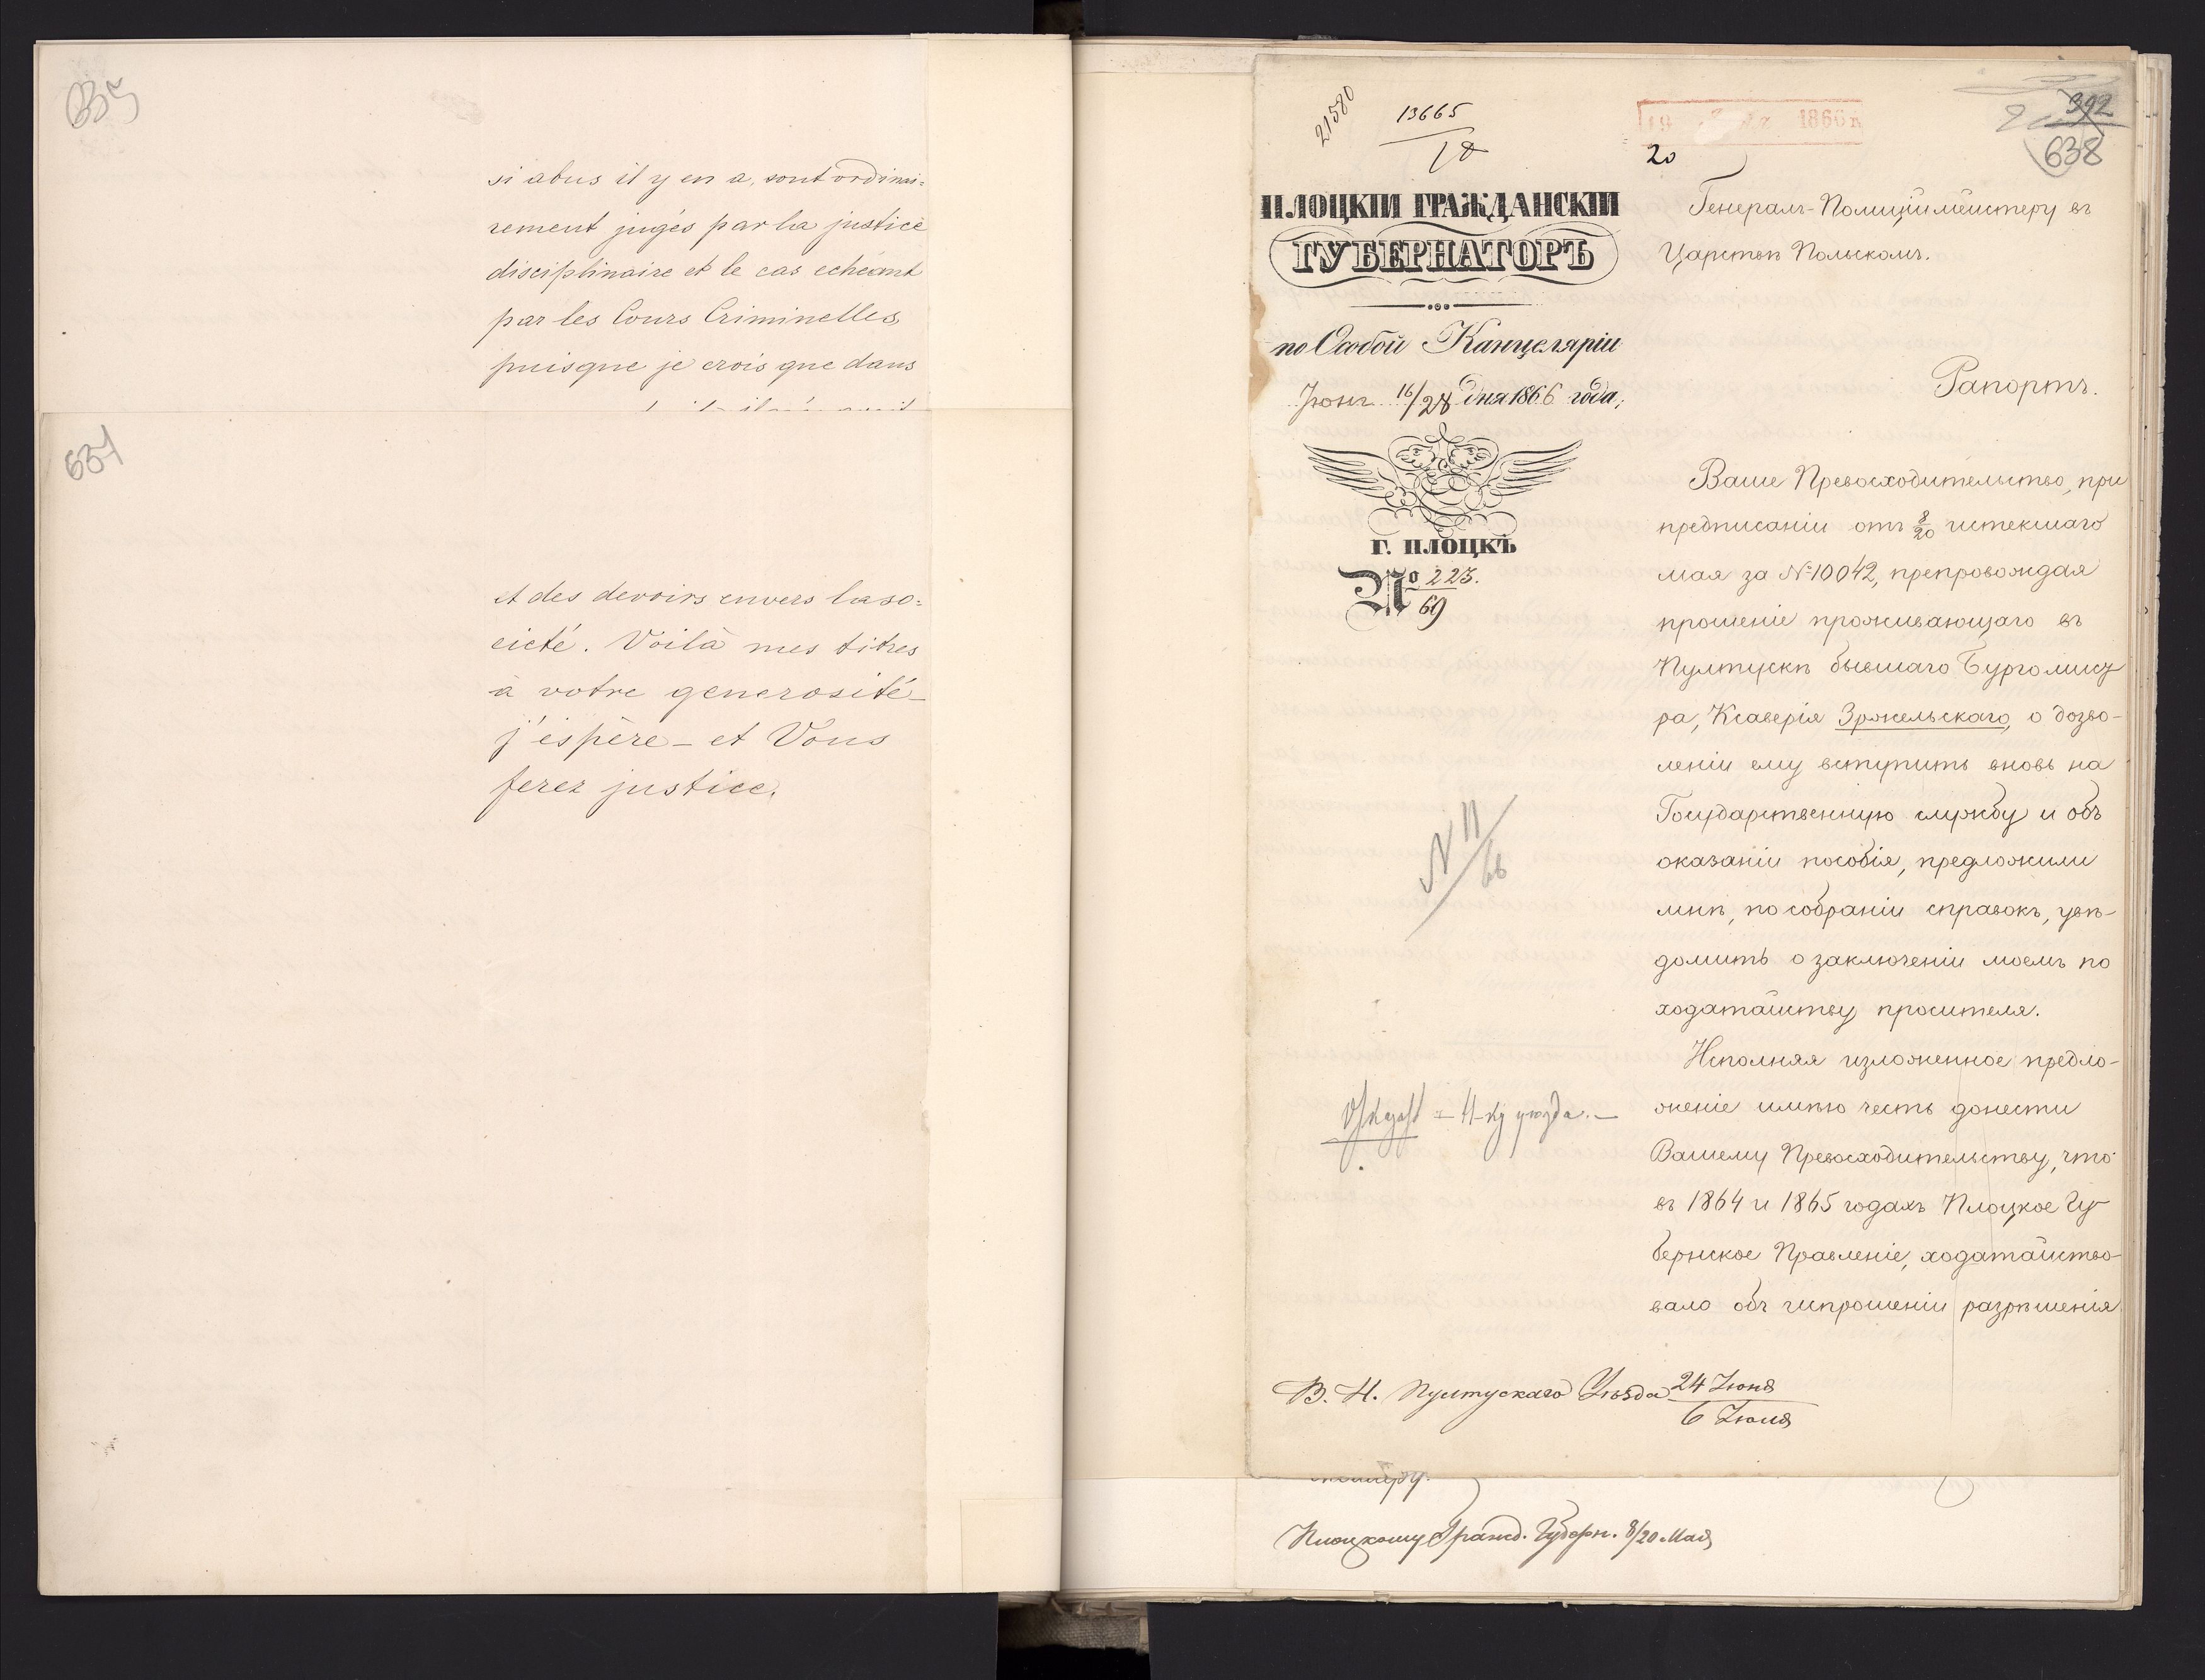 635
si abus il y en a, sont ordinai=
rement jugés par la justice
disciplinaire et le cas echéant
par les Cours Criminelles,
puisque je crois que dans
631
et des devoirs envers la so=
cieté. Voilà mes titres
à votre generosité_
j'éspère_ et Vous
ferez justice.
21580
13665
18
1866 г
20
392
638
ПЛОЦКІЙ ГРАЖДАНСКІЙ
ГУБЕРНАТОРЪ
по Особой Канцеляріи
Іюня 16/28 дня 1866 года,
Г. ПЛОЦКЪ
№ 223.
69
N 11
66
Генералъ-Полиціймейстеру въ
Царствѣ Польскомъ.
Рапортъ.
Ваше Превосходительство, при
предписаніи отъ 8/20 истекшаго
мая за №10042, препровождая
прошеніе проживающаго въ
Пултускѣ бывшаго Бургомист
ра, Ксаверія Зржельскаго, о дозво-
леніи ему вступить вновь на
Государственную службу и объ
оказаніи пособія, предложили
мнѣ, по собраніи справокъ, увѣ-
домить о заключеніи моемъ по
ходатайству просителя.
Исполняя изложенное предло-
женіе имѣю честь донести
Вашему Превосходительству, что
въ 1864 и 1865 годахъ Плоцкое Гу-
бернское Правленіе, ходатайство-
вало объ испрошеніи разрѣшенія
уѣзда.
В. Н. Пултускаго Уѣзда 24 Іюня
6 Іюля
Плоцкому Гражд. Губерн. 8/20 Мая